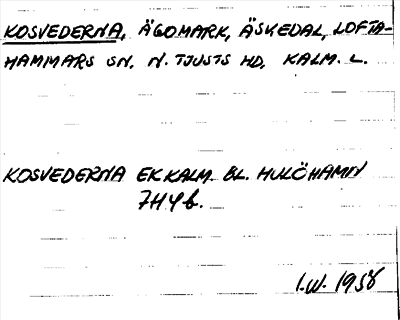 KOSVEDERNA, ÄGOMARK, ÄSKEDAL, LOFTA-
HAMMARS SN. N. TJUSTS HD. KALM. L.
KOSVEDERNA EK KALM. BL. HULÖHAMN
7H4b.
I.W. 1958